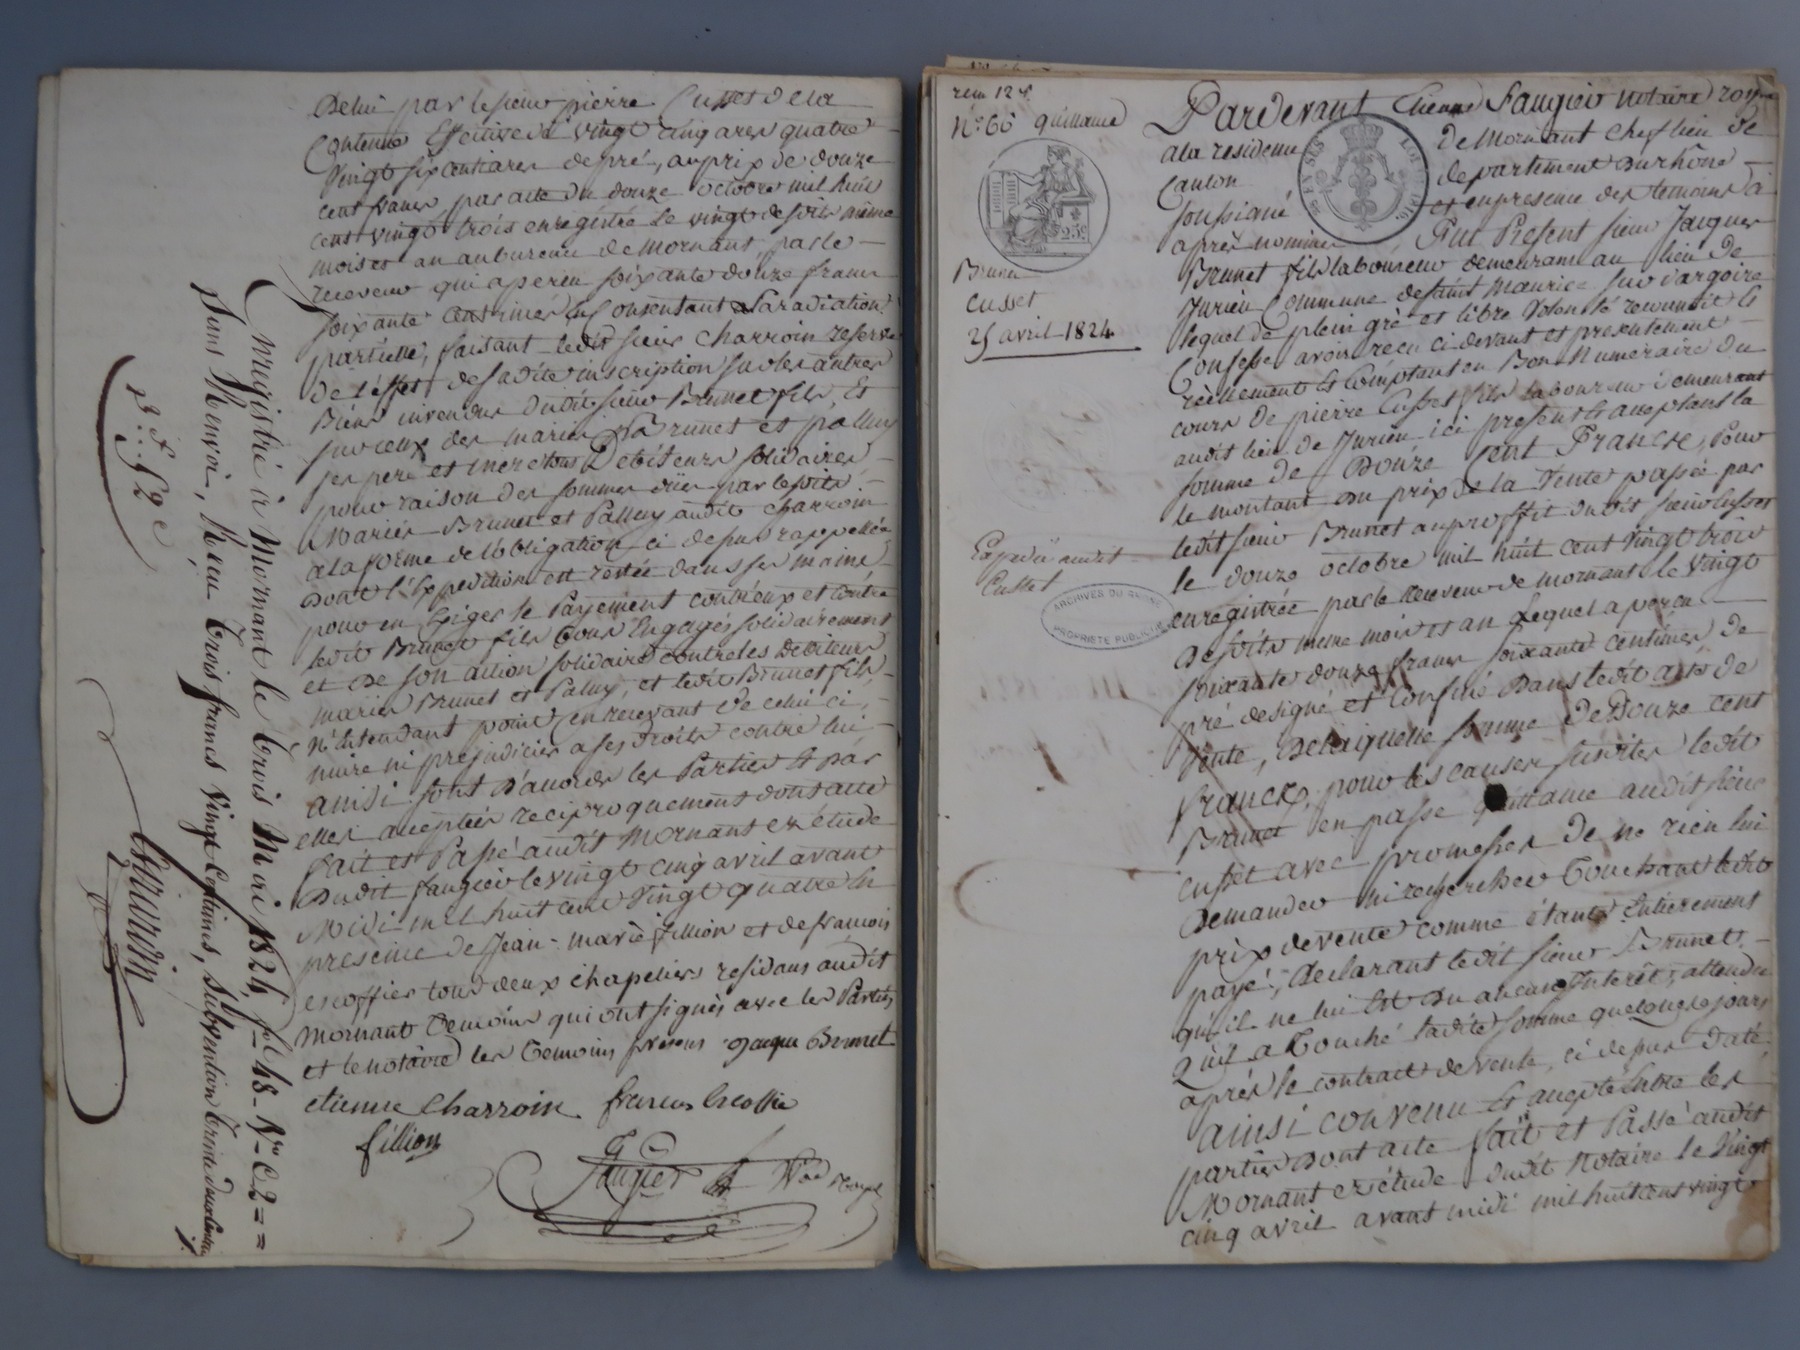 Delui par le sieur pierre Cusset de la
Contenue Effective de vingt cinq ares quatre
vingt six centiares de pré, au prix de douze
cent francs par acte du douze octobre mil huit
cent vingt trois enregistré le vingt desdits même
mois et an au bureau de mornant, par le
receveur qui a perçu soixante douze francs
soixante centimes, en Consentant la radiation
partielle, faisant ledit sieur Charroin reserve
de l'effet de sadite inscription sur les autres
Biens invendus dudit sieur Brunet fils, Et
sur ceux des mariés Brunet et palluy
ses pere et mere tous Debiteurs solidaires
pour raison des sommes dües par lesdits
Mariés Brunet et Palluy audit charroin
a la forme de l'obligation ci depus rappellée
dont l'Expedition est restée dans ses mains
pour en Exiger le Payement contr'eux et contre
ledit Brunet fils tous Engagés solidairement
et De son action solidaire contre les Debiteurs
mariés Brunet et Paluy, et ledit Brunet fils,
N'Entendant point en recevant de celui ci,
nuire ni prejudicier a ses droits contre lui
ainsi sont D'accord les Parties Et par
elles acceptées reciproquement dont acte
fait et Passé audit Mornant en étude
Dudit faugier le vingt cinq avril avant
Midi mil huit cent vingt quatre En
presence de Jean-marie fillion et de françois
escoffier tous deux chapeliers residans audit
Mornant temoins qui ont signés avec les Parties
et le notaire les temoins présens Jacque Brunet
etienne Charroin francois Escoffie
fillion
Faugier
Enregistré à Mornant le trois Mai 1824 fol 48 Vo C 2
Sans Renvoi, Reçu trois francs vingt Centimes, Subvention trente deux Centimes
3 f 52 c
N° 66 quittance
Brunet
Cusset
25 avril 1824
Expedié audit
Cusset
ARCHIVES DU RHONE
PROPRIETE PUBLIQUE
25c
Pardevant Etienne Faugier Notaire royal
a la residence de Mornant chef lieu de
Canton departement du rhône
soussigné et en presence des temoins cy
après nommés, Fut Present sieur Jacques
Brunet fils laboureur demeurant au lieu de
Jurieu Commune de saint Maurice sur dargoire
lequel de plein gré et libre volonté reconnoit Et
Confesse avoir reçu ci devant et presentement
réellement Et Comptant en Bon Numéraire du
cours de pierre Cusset fils laboureur demeurant
audit lieu de Jurieu ici present Et acceptant la
somme de Douze Cent Francs, Pour
le montant du prix de la vente passée par
ledit sieur Brunet au proffit dudit sieur Cusset
le douze octobre mil huit cent vingt trois
enregistrée par le receveur de mornant le vingt
Desdits même mois et an Lequel a perçu
soixante douze francs soixante centimes, de
pré designé et Confiné dans ledit acte de
Vente, De laquelle somme de Douze cent
francs, pour les causes susdites ledit
Brunet en passe quittance audit sieur
cusset avec promesses de ne rien lui
Demander ni rechercher touchant ledit
prix de vente comme étant Entierement
payé, declarant ledit sieur Brunet
qu'il ne lui Est Du aucun Interêt, attendu
Qu'il a touché ladite somme quelques jours
après le contract de vente, ci depus daté,
ainsi convenu Et accepté Entre les
parties Dont acte fait et Passé audit
Mornant en étude dudit Notaire le vingt
cinq avril avant midi mil huit cent vingt